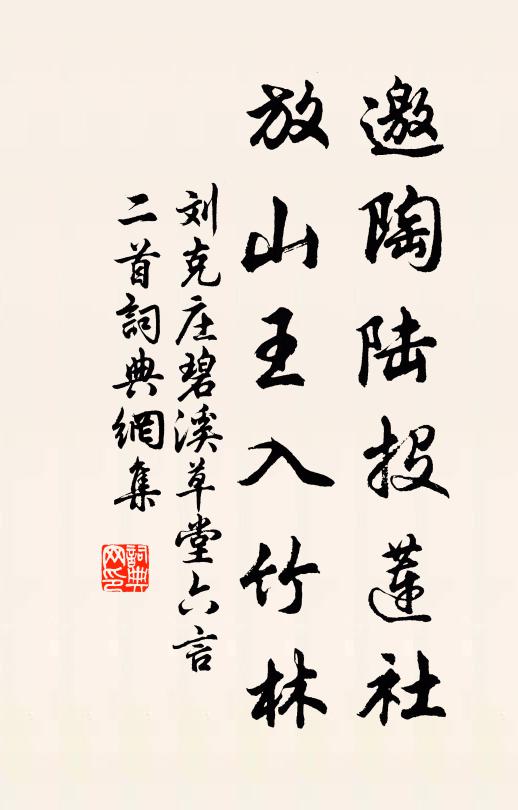 邀陶陆投莲社
放山王入竹林
刘克庄碧溪草堂六言
二首詞典網集
詞典网印